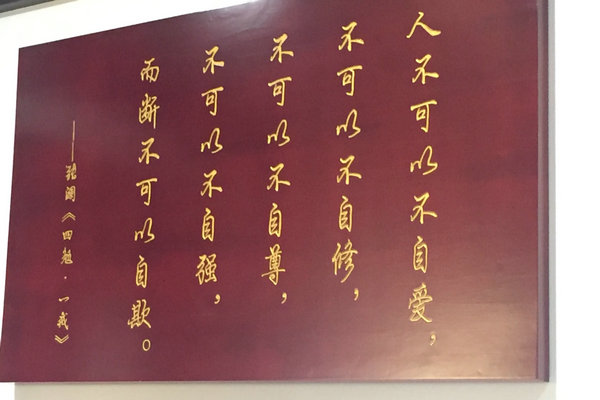 人不可以不自爱，
不可以不自修，
不可以不自尊，
不可以不自强，
而断不可以自欺。
——张澜《四勉·一戒》